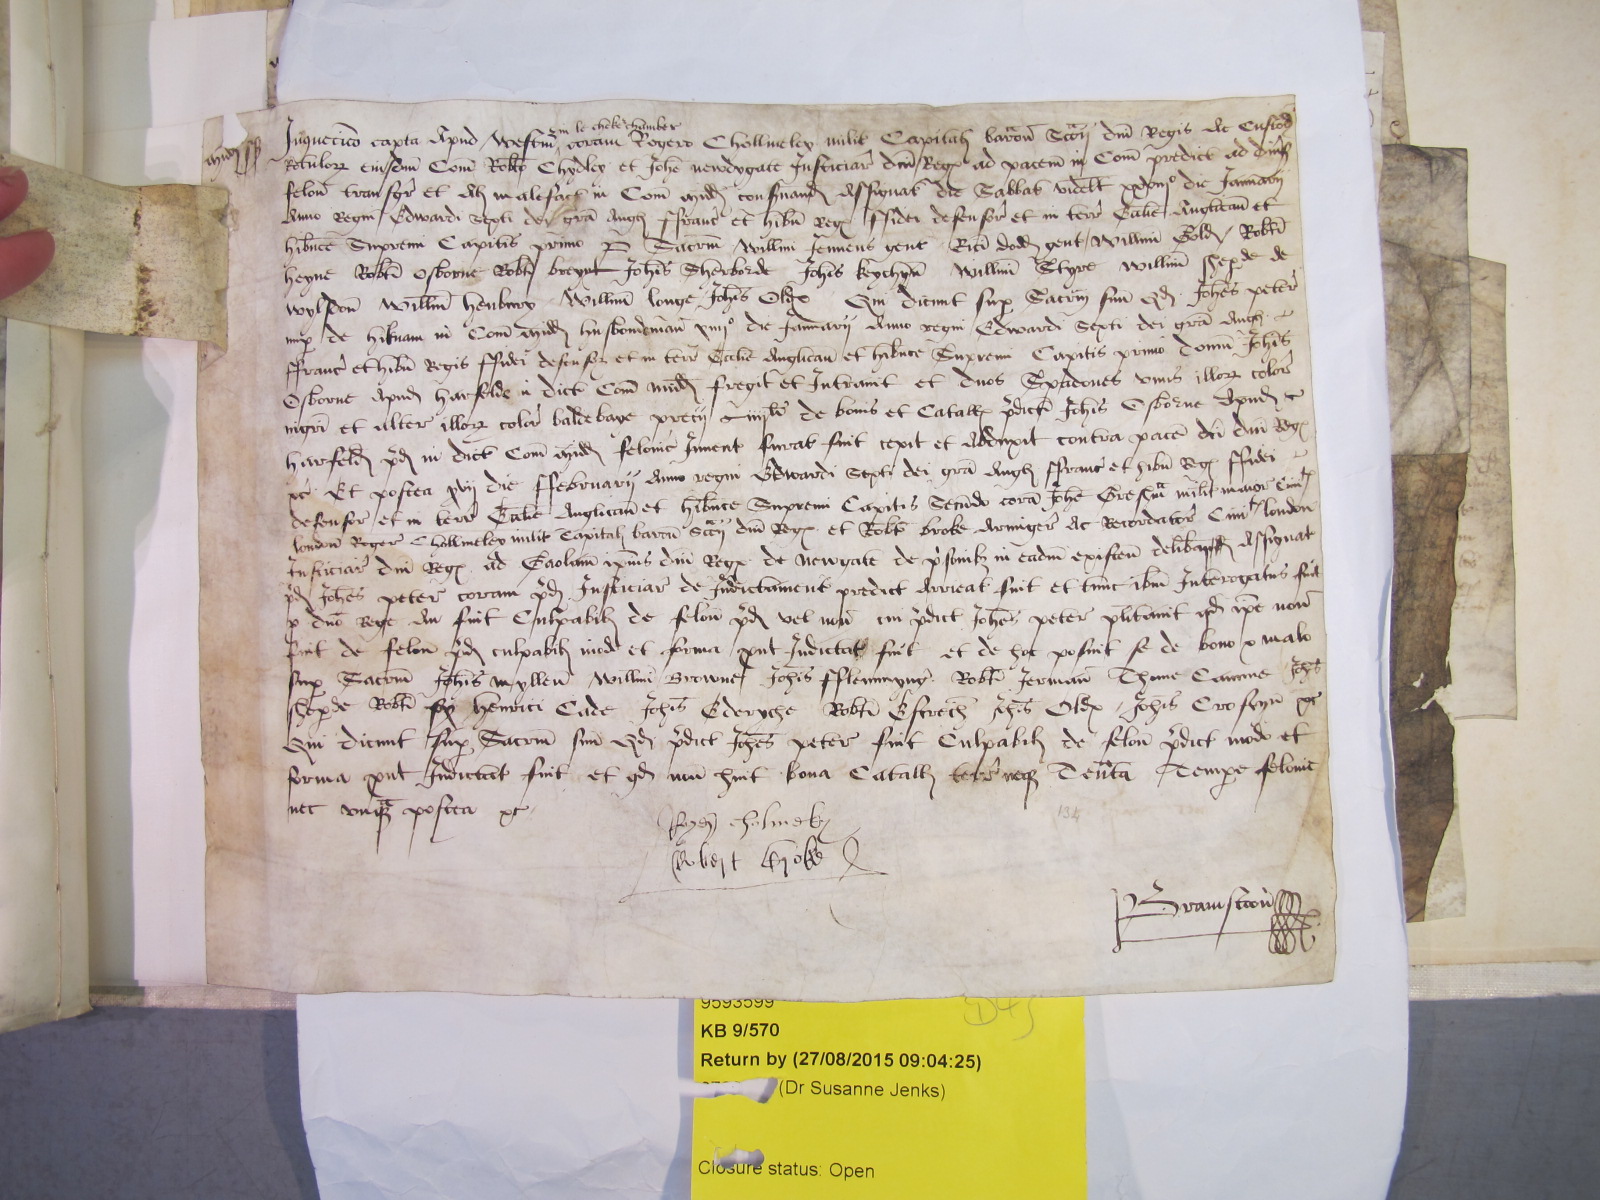 in le cheker chamber
Inquisicio capta apud Westm coram Rogero Chollmeley milit Capitali baron Sccii dni Regis ac Custod
Rotulorum eiusdem Com Robto Chydley et Johe newdygate Justiciar dni Regis ad pacem in Com predict ad diusas
felon transgr et al malefact in Com midd conseruand Assignat die Sabbati videlt die Januarii
Anno Regni Edwardi Sexti dei gra Angl ffranc et hibn Regis ffidei defensor et in terr Ecclie Anglicane et
hibnice Supremi Capitis primo p Sacrm Willmi Jennens gent Rici dodd gent Willmi Gold Robti
heyne Robti Osborne Robti breynt Johis Sherborde Johis keychyn Willmi Style Willmi Sheperde de
Wylsdon Willmi henbury Willmi longe Johis Olde Qui dicunt sup Sacrm suu qd Johes peter
nup de in Com midd husbondeman xiiii° die Januarii Anno regni Edwardi Sexti dei gra Angl
ffranc et hibn Regis ffidei defensor et in terr Ecclie Anglicane et hibnice Supremi Capitis primo domu Johis
Osborne apud harfelde in dict Com midd fregit et Intrauit et duos Spadones vnus illorum coloris
nigri et alter illorum coloris balde baye precii de bonis et Catallis pdicti Johis Osborne apud
harfeld pd in dict Com midd felonice Inuent furat fuit cepit et Abduxit contra pace dci dni Regis
&c Et postea xvii die ffebruarii Anno regni Edwardi Sexti dei gra Angl ffranc et hibn Regis ffidei
defensor et in terr Ecclie Anglicane et hibnice Supremi Capitis Secundo cora Johe Gresham milit maior Ciuit
london Roger Chollmeley milit Capitali baron Sccii dni Regis et Robto broke Armiger ac Recordator Ciuit london
Justiciar dni Regis ad Gaolam ipius dni Regis de newgate de prisonar in eadem existen deliband Assignat
pd Johes peter coram pd Justiciar de Indictament predict Arrenat fuit et tunc ibm Interrogatus fuit
p dno Rege an fuit Culpabil de felon pd vel non qui pdict Johes peter plitauit qd ipe non
fuit de felon pd culpabil modo et forma put Indictat fuit et de hoc posuit se de bono & malo
sup Sacrm Johis Myllen Willmi Browne Johis fflemmyng Robti Jerman Thome Camme Johis
Sheperde Robti henrici Cade Johis Ederyche Robti Estrech Johis Olde Johis Croskyn &c
Qui dicunt sup Sacrm suu qd pdict Johes peter fuit Culpabil de felon pdict modo et
forma put Indictat fuit et qd non huit bona Catall terr neqz Tenta Tempe felonie
nec vnqm postea &c
134
Roger Cholmeley
Robert Broke
Bramston
9593599
KB 9/570
Return by (27/08/2015 09:04:25)
(Dr Susanne Jenks)
Closure status: Open